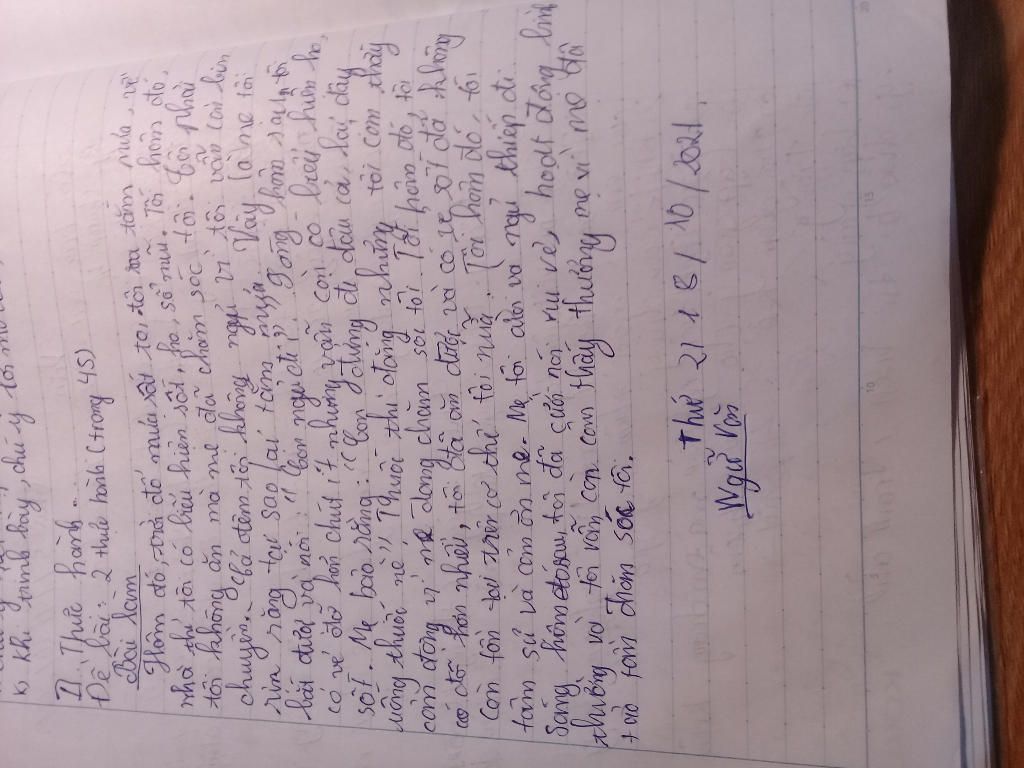 k) khi trình bày, chú ý tới
II, Thực hành..
Đề bài: 2 thực hành (trang 45)
Bài làm
Hôm đó, trời đổ mưa tơi tôi ra tắm mưa, về
nhà thì tôi có biểu hiện sốt, ho, sổ mũi. Tối hôm đó,
tôi không ăn mà mẹ đã chăm sóc tôi. Tôi phải
chuyện. Cả đêm tôi không ngủ vì tôi vẫn còn
rằng tại sao lại tắm mưa. Vậy là mẹ tôi
bắt dượi và nói: " con ngủ đi ". Sáng hôm sau, tôi
có vẻ đỡ hơn chút ít nhưng vẫn còn có biểu hiện ho,
sốt. Mẹ bảo rằng: "Con đừng đi đâu cả, lại đây
uống thuốc nè". Thuốc thì đắng nhưng tôi cảm thấy
cảm động vì mẹ đang chăm sóc tôi. Tối hôm đó tôi
có đỡ hơn nhiều, tôi đã ăn được và có vẻ sốt đã không
còn tồn tại trên cơ thể tôi nữa. Tối hôm đó, tôi
tâm sự và cảm ơn mẹ. Mẹ tôi cười và ngủ thiếp đi.
Sáng hôm sau, tôi đã cười nói vui vẻ, hoạt động bình
thường và tôi vẫn còn cảm thấy thương mẹ vì mẹ đã
tảo tần chăm sóc tôi.
Thứ 2 / 18 / 10 / 2021
Ngữ Văn